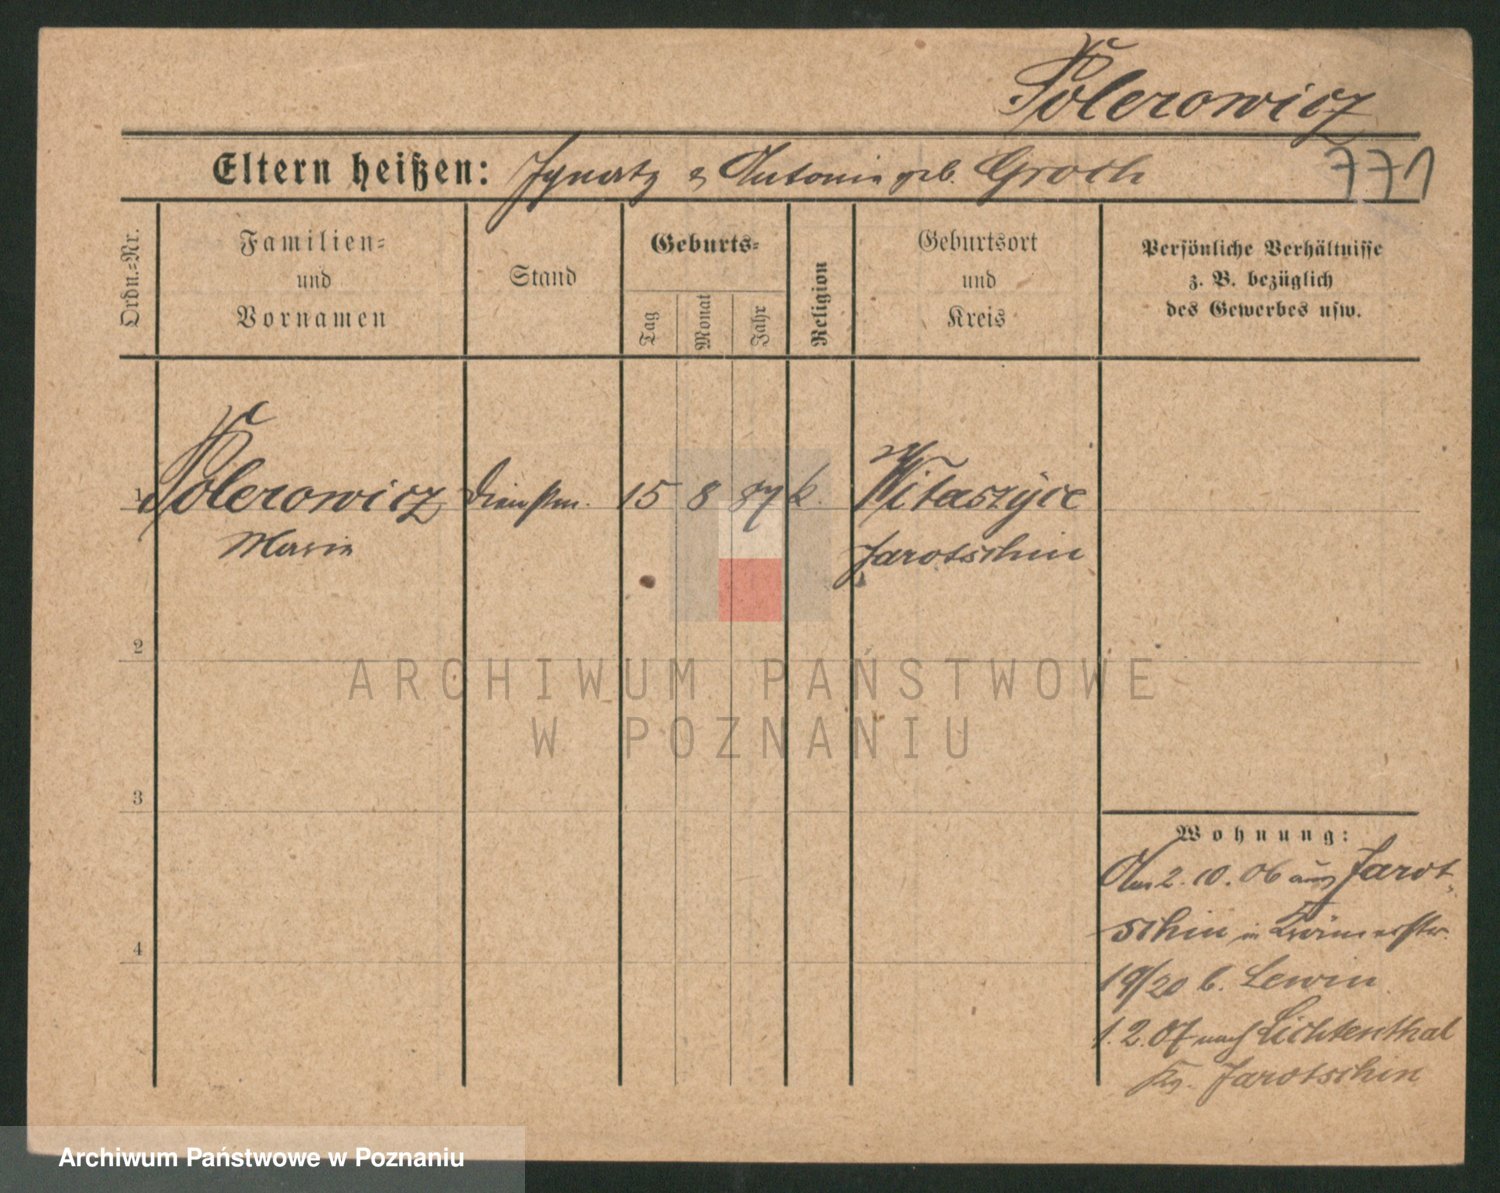 Polerowicz
Eltern heißen: Ignatz & Antonie geb. Groch
771
Ordn.=Nr.
Familien=
und
Vornamen
Stand
Geburts=
Tag
Monat
Jahr
Religion
Geburtsort
und
Kreis
Persönliche Verhältnisse
z. B. bezüglich
des Gewerbes usw.
1 Polerowicz Dienstm. 15 8 87 k. Witaszyce
Maria Jarotschin
2
ARCHIWUM PAŃSTWOWE
W POZNANIU
3
4
Wohnung:
Am 2.10.06 aus Jarot-
schin in Krämerstr.
19/20 b. Lewin
1.2.07 nach Lichtenthal
Kr. Jarotschin
Archiwum Państwowe w Poznaniu